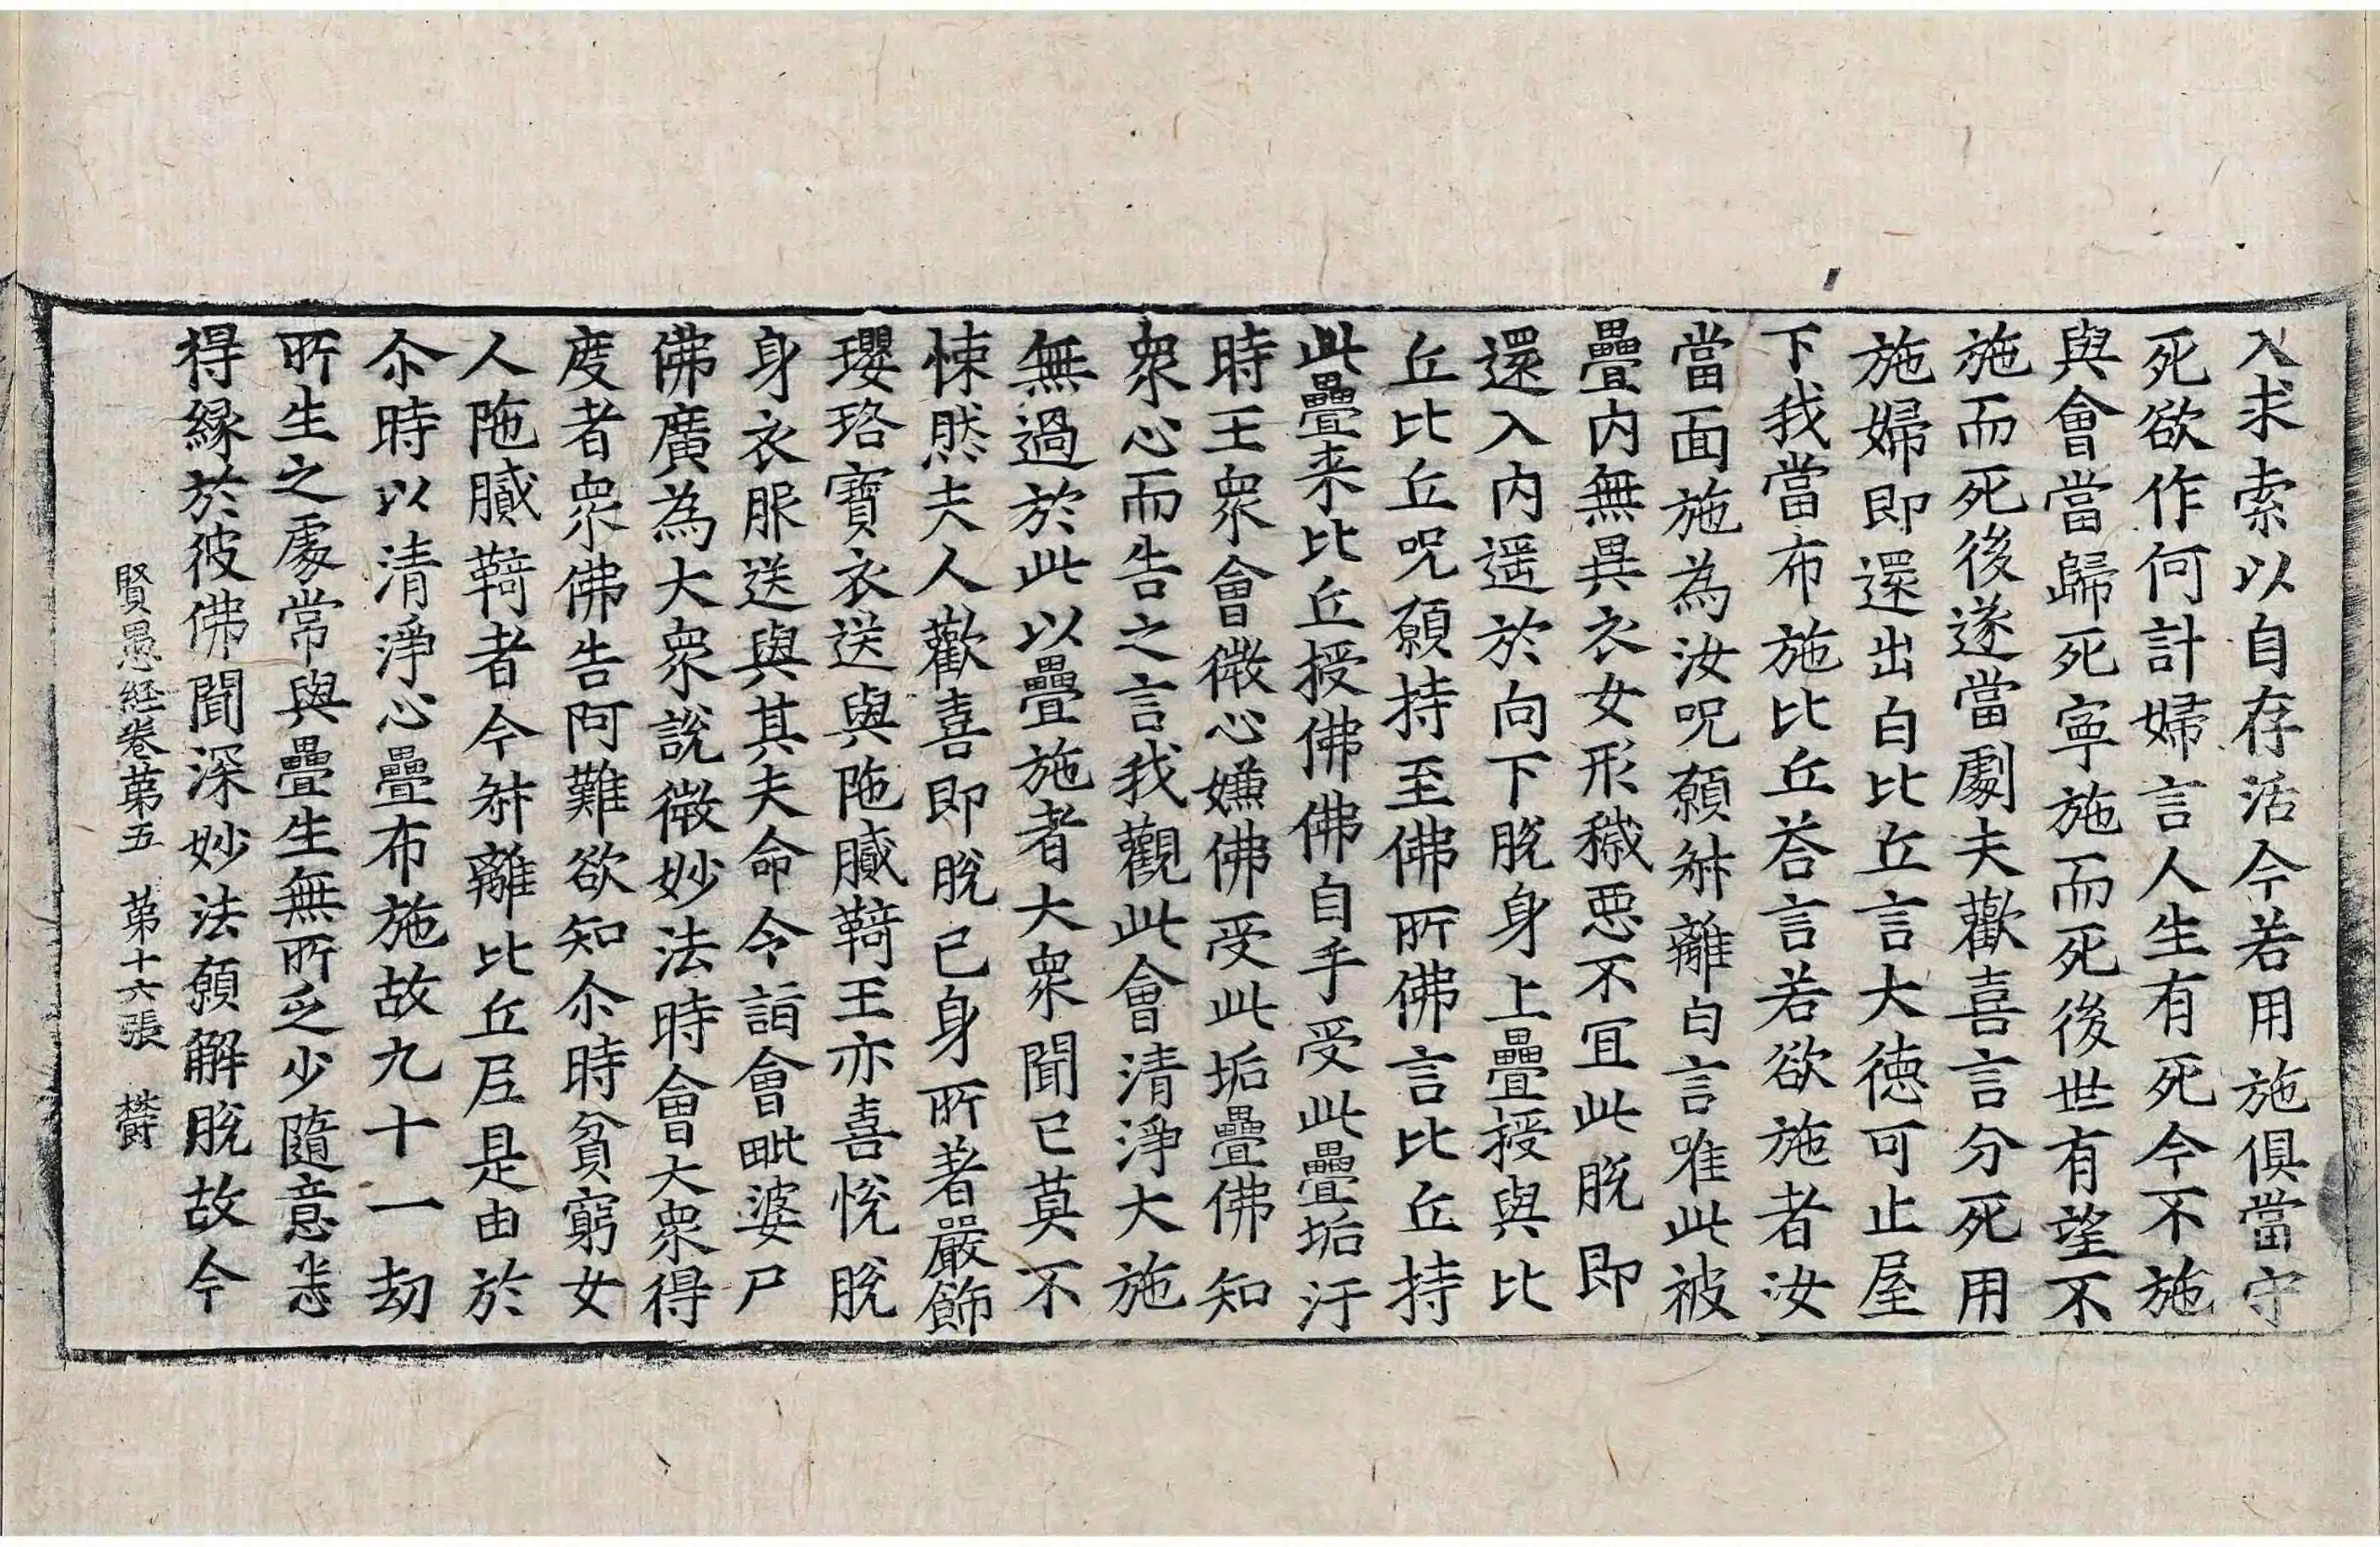 入求索以自存活今若用施俱當守
死欲作何計婦言人生有死今不施
與會當歸死寧施而死後世有望不
施而死後遂當劇夫歡喜言分死用
施婦即還出白比丘言大德可止屋
下我當布施比丘荅言若欲施者汝
當面施為汝呪願㪷離白言唯此被
疊内無異衣女形穢惡不宜此脫即
還入内遥於向下脫身上疊授與比
丘比丘呪願持至佛所佛言比丘持
此疊来比丘授佛佛自手受此疊垢汙
時王衆會微心嫌佛受此垢疊佛知
衆心而告之言我觀此會清淨大施
無過於此以疊施者大衆聞已莫不
悚然夫人歡喜即脫已身所著嚴飾
瓔珞寶衣送與陁膩䩭王亦喜悅脫
身衣服送與其夫命令詣會毗婆尸
佛廣為大衆說微妙法時會大衆得
度者衆佛告阿難欲知尒時貧窮女
人陁膩䩭者今㪷離比丘尼是由於
尒時以清淨心疊布施故九十一劫
所生之處常與疊生無所乏少隨意悉
得縁於彼佛聞深妙法願解脫故今
賢愚経卷第五　第十六張　欝